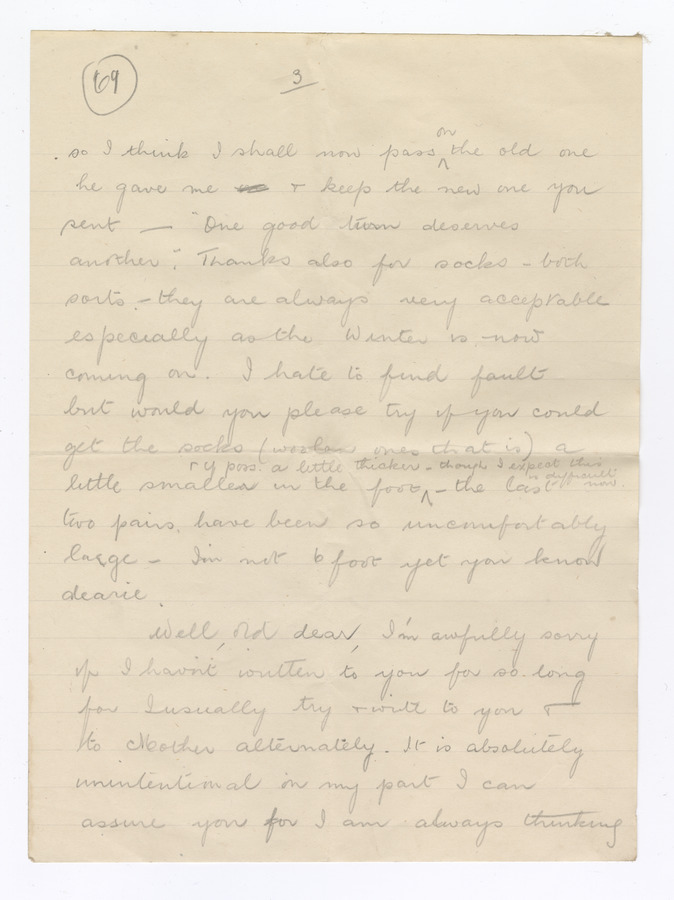 69
3
so I think I shall now pass on the old one
he gave me + keep the new one you
sent — "One good turn deserves
another". Thanks also for socks - both
sorts - they are always very acceptable
especially as the Winter is now
coming on. I hate to find fault
but would you please try if you could
get the socks (woolen ones that is) a
+ if poss. a little thicker - though I expect this
is difficult now.
little smaller in the foot - the last
two pairs have been so uncomfortably
large - I'm not 6 foot yet you know
dearie.
Well, old dear, I'm awfully sorry
if I havn't written to you for so long
for I usually try + write to you +
to Mother alternately. It is absolutely
unintentional on my part I can
assure you for I am always thinking